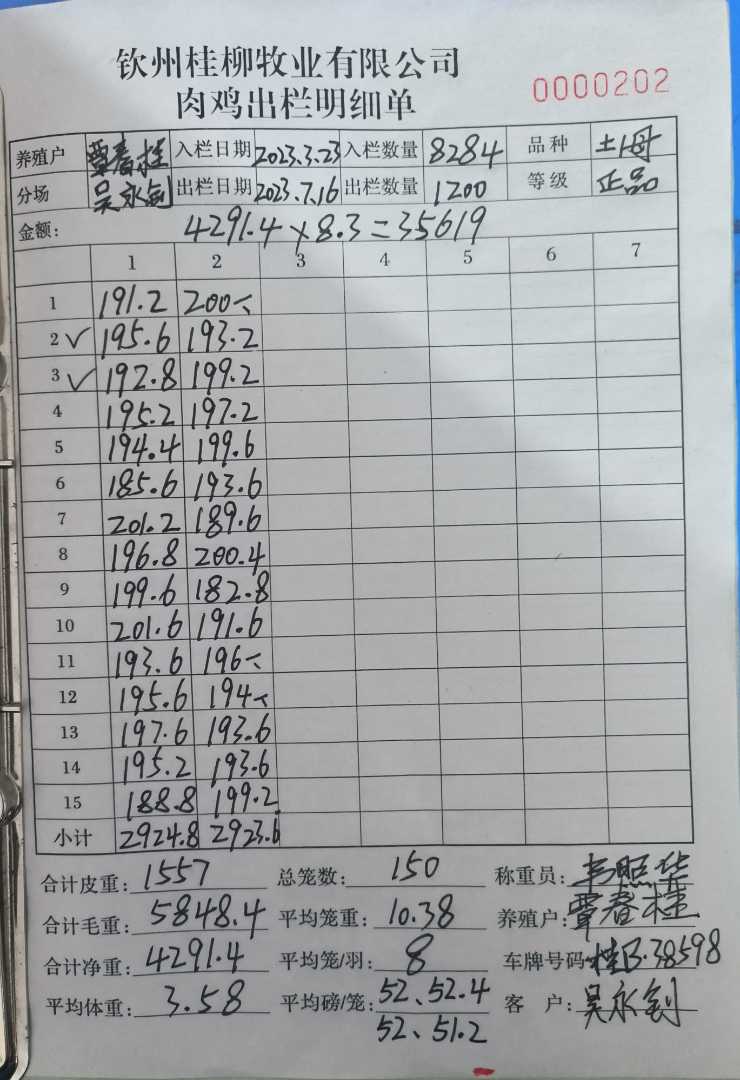 钦州桂柳牧业有限公司
肉鸡出栏明细单 0000202
养殖户 覃春桂 入栏日期 2023.3.23 入栏数量 8284 品种 土1母
分场 吴永钊 出栏日期 2023.7.16 出栏数量 1200 等级 正品
金额: 4291.4×8.3=35619
1 2 3 4 5 6 7
1 191.2 200
2 ✓ 195.6 193.2
3 ✓ 192.8 199.2
4 195.2 197.2
5 194.4 199.6
6 185.6 193.6
7 201.2 189.6
8 196.8 200.4
9 199.6 182.8
10 201.6 191.6
11 193.6 196
12 195.6 194
13 197.6 193.6
14 195.2 193.6
15 188.8 199.2
小计 2924.8 2923.6
合计皮重: 1557 总笼数: 150 称重员: 韦照华
合计毛重: 5848.4 平均笼重: 10.38 养殖户: 覃春桂
合计净重: 4291.4 平均笼/羽: 8 车牌号码 桂B·38598
平均体重: 3.58 平均磅/笼: 52、52.4 客 户: 吴永钊
52、51.2